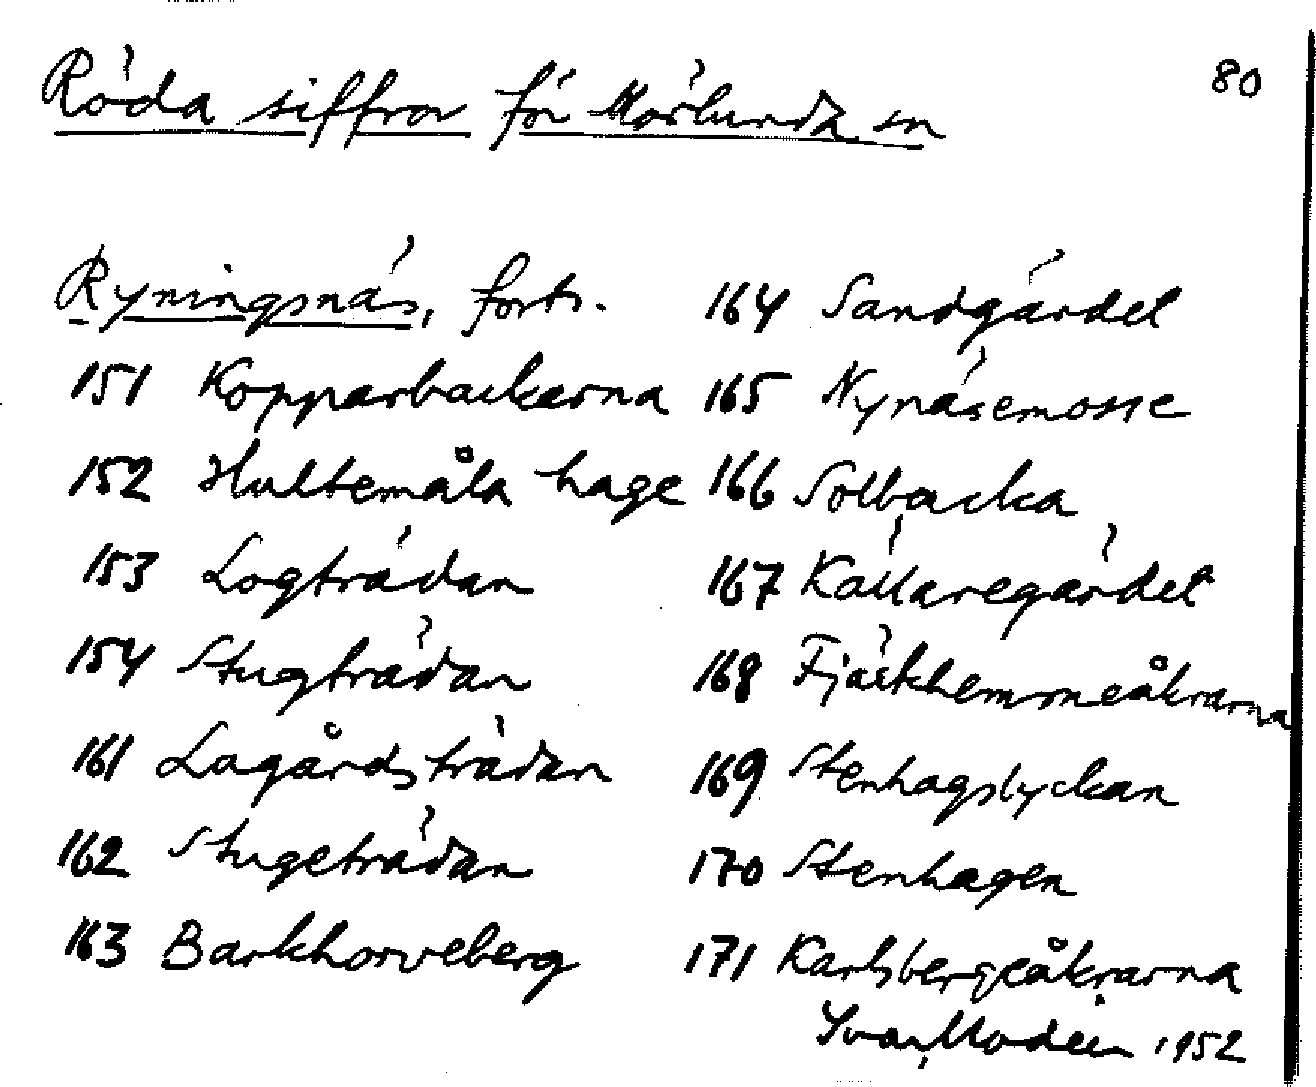 80
Röda siffror för Mörlunda sn
Ryningsnäs, forts.
151 Kopparbackarna
152 Hultemåla hage
153 Logträdan
154 Stugträdan
161 Lagårdsträdan
162 Stugeträdan
163 Barkhorveberg
164 Sandgärdet
165 Nynäsemosse
166 Solbacka
167 Källaregärdet
168 Fjärkhemmeåkrarna
169 Stenhagslyckan
170 Stenhagen
171 Karlsbergeåkrarna
Ivar Modéer 1952